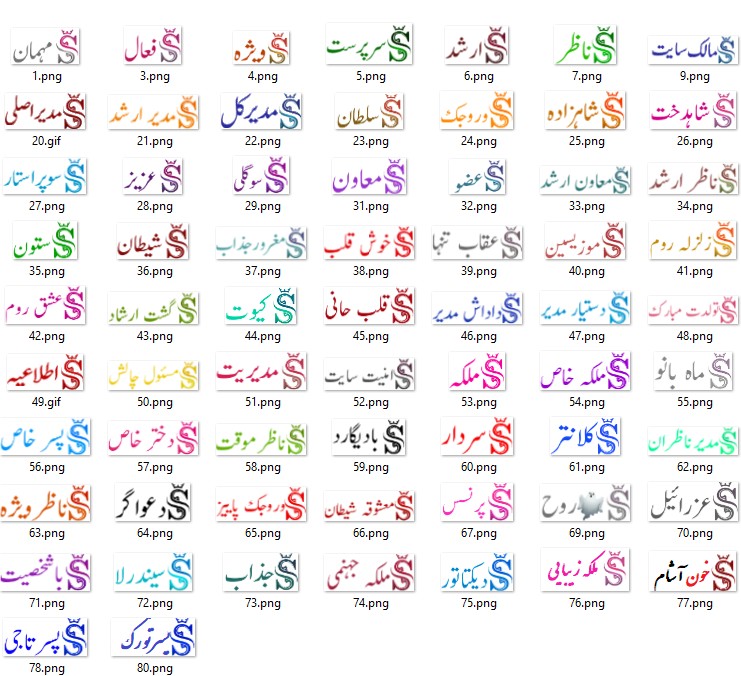 مهمان S فعال S ویژه S سرپرست S ارشد S ناظر S مالک سایت S
1.png 3.png 4.png 5.png 6.png 7.png 9.png
مدیراصلی S مدیر ارشد S مدیرکل S سلطان S وروجک S شاهزاده S شاهدخت S
20.gif 21.png 22.png 23.png 24.png 25.png 26.png
سوپراستار S عزیز S سوگلی S معاون S عضو S معاون ارشد S ناظر ارشد S
27.png 28.png 29.png 31.png 32.png 33.png 34.png
ستون S شیطان S مغرورجذاب S خوش قلب S عقاب تنها S موزیسین S زلزله روم S
35.png 36.png 37.png 38.png 39.png 40.png 41.png
عشق روم S گشت ارشاد S کیوت S قلب حانی S داداش مدیر S دستیار مدیر S تولدت مبارک S
42.png 43.png 44.png 45.png 46.png 47.png 48.png
اطلاعیه S مسئول چالش S مدیریت S امنیت سایت S ملکه S ملکه خاص S ماه بانو S
49.gif 50.png 51.png 52.png 53.png 54.png 55.png
پسر خاص S دختر خاص S ناظر موقت S بادیگارد S سردار S کلانتر S مدیر ناظران S
56.png 57.png 58.png 59.png 60.png 61.png 62.png
ناظر ویژه S دعوا گر S وروجک پاییز S معشوقه شیطان S پرنس S روح S عزرائیل S
63.png 64.png 65.png 66.png 67.png 69.png 70.png
باشخصیت S سیندرلا S جذاب S ملکه جهنمی S دیکتاتور S ملکه زیبایی S خون آشام S
71.png 72.png 73.png 74.png 75.png 76.png 77.png
پسر تاجی S پسرتورک S
78.png 80.png